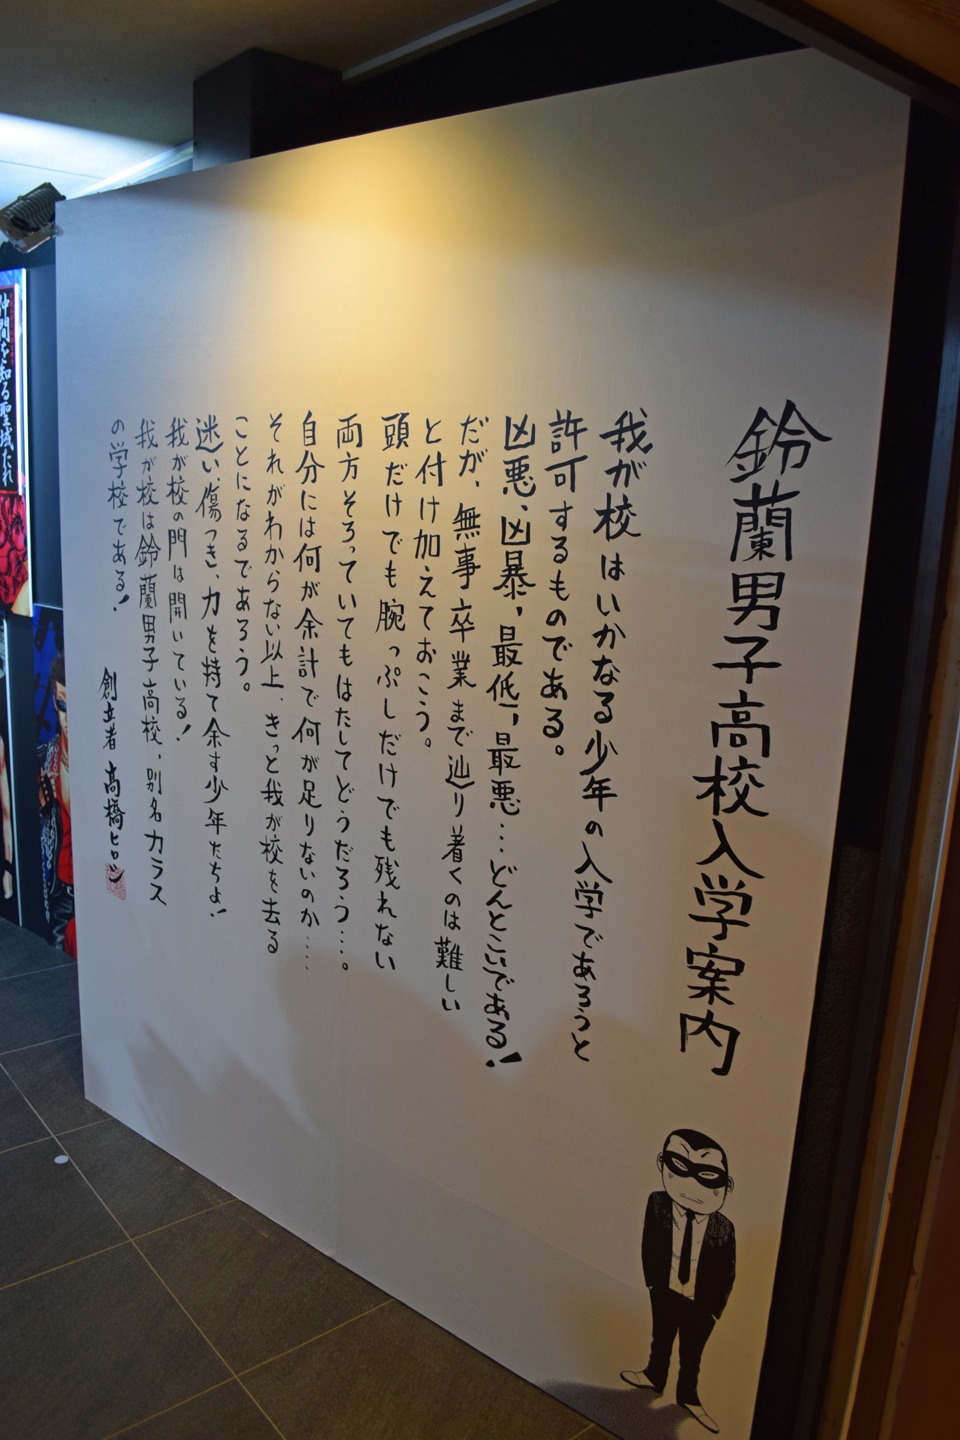 鈴蘭男子高校入学案内
我が校はいかなる少年の入学であろうと
許可するものである。
凶悪、凶暴、最低、最悪…どんとこいである!
だが、無事卒業まで辿り着くのは難しい
と付け加えておこう。
頭だけでも腕っぷしだけでも残れない
両方そろっていてもはたしてどうだろう…。
自分には何が余計で何が足りないのか……
それがわからない以上、きっと我が校を去る
ことになるであろう。
迷い、傷つき、力を持て余す少年たちよ!
我が校の門は開いている!
我が校は鈴蘭男子高校、別名カラス
の学校である!
創立者 高橋ヒロシ
仲間を知る聖域たれ